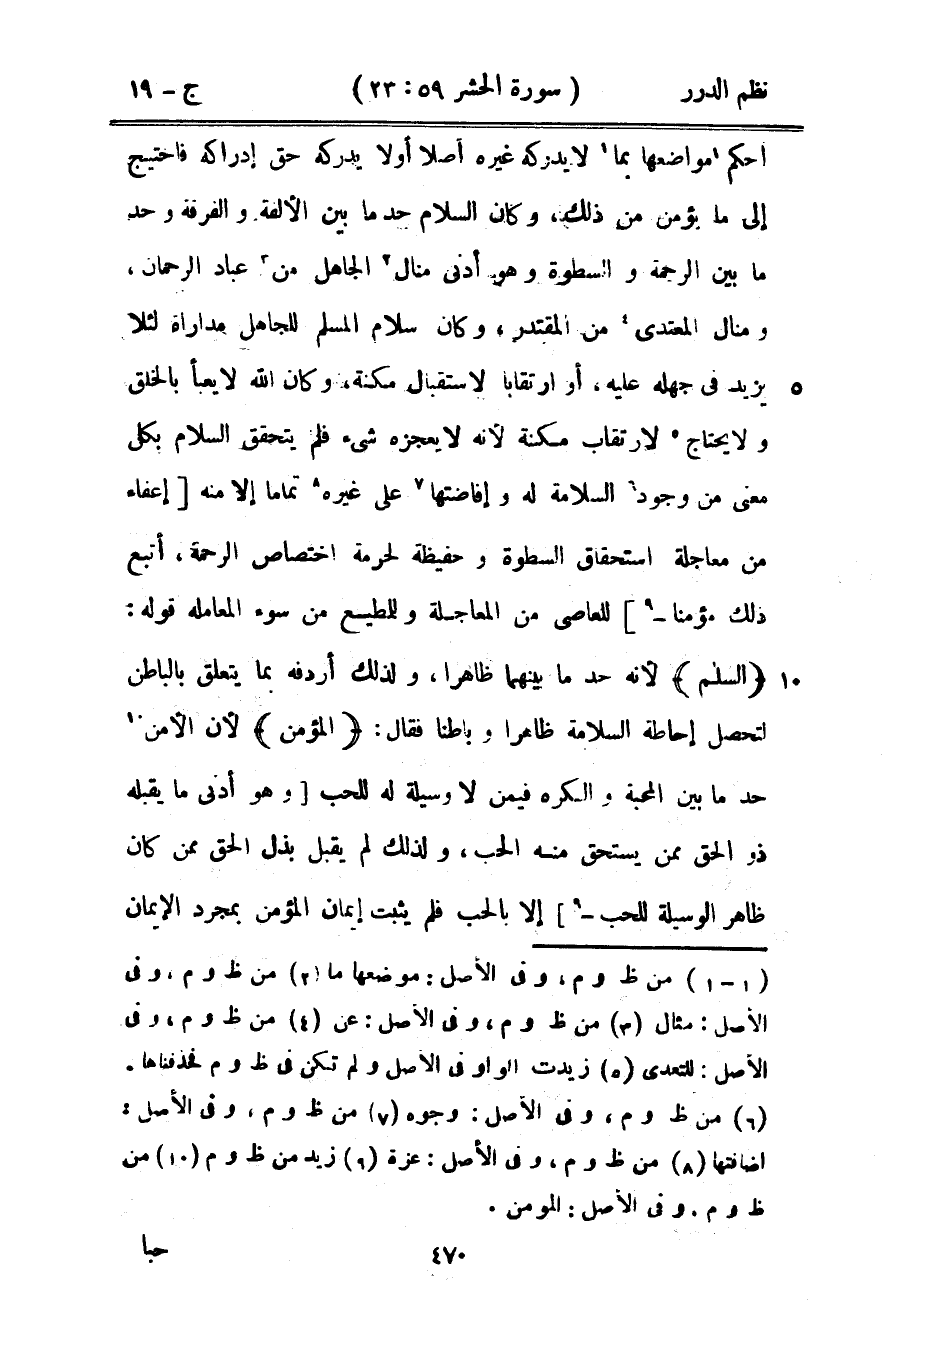 نظم الدرر ( سورة الحشر ٥٩ : ٢٣ ) ج - ١٩
أحكم ١مواضعها بما١ لا يدركه غيره أصلا أو لا يدركه حق إدراكه فاحتيج
إلى ما يؤمن من ذلك، و كان السلام حد ما بين الألفة و الفرقة و حد
ما بين الرحمة و السطوة و هو أدنى منال٢ الجاهل من٣ عباد الرحمان،
و منال المعتدى٤ من المقتدر، و كان سلام المسلم للجاهل مداراة لئلا
٥ يزيد فى جهله عليه، أو ارتقابا لاستقبال مكنة، و كان الله لا يعبأ بالخلق
و لا يحتاج٥ لارتقاب مكنة لأنه لا يعجزه شىء فلم يتحقق السلام بكل
معنى من وجود٦ السلامة له و إفاضتها٧ على غيره٨ تماما إلا منه [ إعفاء
من معاجلة استحقاق السطوة و حفيظة لحرمة اختصاص الرحمة، أتبع
ذلك مؤمنا -٩ ] للعاصى من المعاجلة و للمطيع من سوء المعامله قوله :
١٠ ﴿ السلٰم ﴾ لأنه حد ما بينهما ظاهرا، و لذلك أردفه بما يتعلق بالباطن
لتحصل إحاطة السلامة ظاهرا و باطنا فقال : ﴿ المؤمن ﴾ لأن الأمن١٠
حد ما بين المحبة و الكره فيمن لا وسيلة له للحب [ و هو أدنى ما يقبله
ذو الحق ممن يستحق منه الحب، و لذلك لم يقبل بذل الحق ممن كان
ظاهر الوسيلة للحب -٩ ] إلا بالحب فلم يثبت إيمان المؤمن بمجرد الإيمان
( ١ - ١ ) من ظ و م، و فى الأصل : موضعها ما (٢) من ظ و م، و فى
الأصل : مثال (٣) من ظ و م، و فى الأصل : عن (٤) من ظ و م، و فى
الأصل : للتعدى (٥) زيدت الواو فى الأصل و لم تكن فى ظ و م فحذفناها .
(٦) من ظ و م، و فى الأصل : وجوه (٧) من ظ و م، و فى الأصل :
اضافتها (٨) من ظ و م، و فى الأصل : عزة (٩) زيد من ظ و م (١٠) من
ظ و م . و فى الأصل : المومن .
٤٧٠ حبا